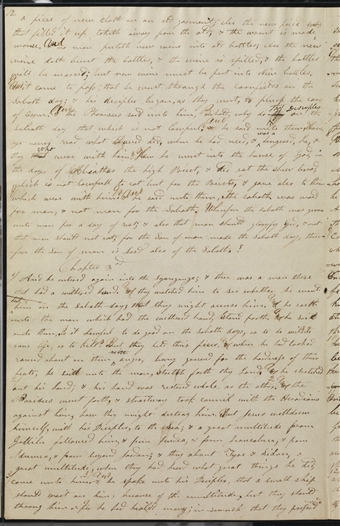 a piece of new cloth on an old garment; else the new piece
that filled it up taketh away from the old, & the rent is made
worse, And no man putteth new wine into old bottles, else the new
wine doth burst the bottles, & the wine is spilled, & the bottles
will be marred; but new wine must be put into new bottles,
And it came to pass, that he went through the cornfields on the
Sabath day; & his desciples began, as they went, to pluck the ears
of corn, And the Pharisees said unto him, Behold, why do thy Desciples on the
sabath day that which is not lawful, & he said unto them, have
ye never read what David did, when he had need, & was a hungered, he, &
they who were with him, how he went into the house of god in
the days of Abiathar the high Priest, & did eat the shew bread,
which is not lawful to eat but for the Priests, & gave also to them
which were with him, & he said unto them, the sabath was made
for man, & not man for the Sabath, Wherefore the sabath was given
unto man for a day of rest; & also that man should glorify God, & not
that man should not eat; for the Son of man made the Sabath day, there
fore the Son of man is Lord also of the Sabath
Chapter 3
And he entered again into the synagogue; & there was a man there
that had a withered hand, & they watched him to see whether he would
him on the sabath day; that they might accuse him, & he saith
unto the man which had the withered hand, stand forth, & he said
unto them, is it lawful to do good on the sabath days, or to do evil, to
save life, or to kill, But they held their peace, & when he had looked
round about on them with anger, being grieved for the hardness of their
hearts, he said unto the man, stretch forth thy hand, & he stretched
out his hand; & his hand was restored whole as the other, & the
Pharisees went forth, & straitway took council with the Herodians
against him, how they might destroy him, But Jesus withdrew
himself, with his Desciples, to the Sea; & a great multitude from
Gallilee followed him, & from Judea, & from Jerusalem, & from
Idumea, & from beyond Jordan; & they about Tyre & sidon, a
great multitude, when they had heard what great things he did
came unto him, & he spake unto his Desciples, that a small ship
should wait on him, because of the multitude, lest they should
throng him, for he had healed many; in somuch that they pressed